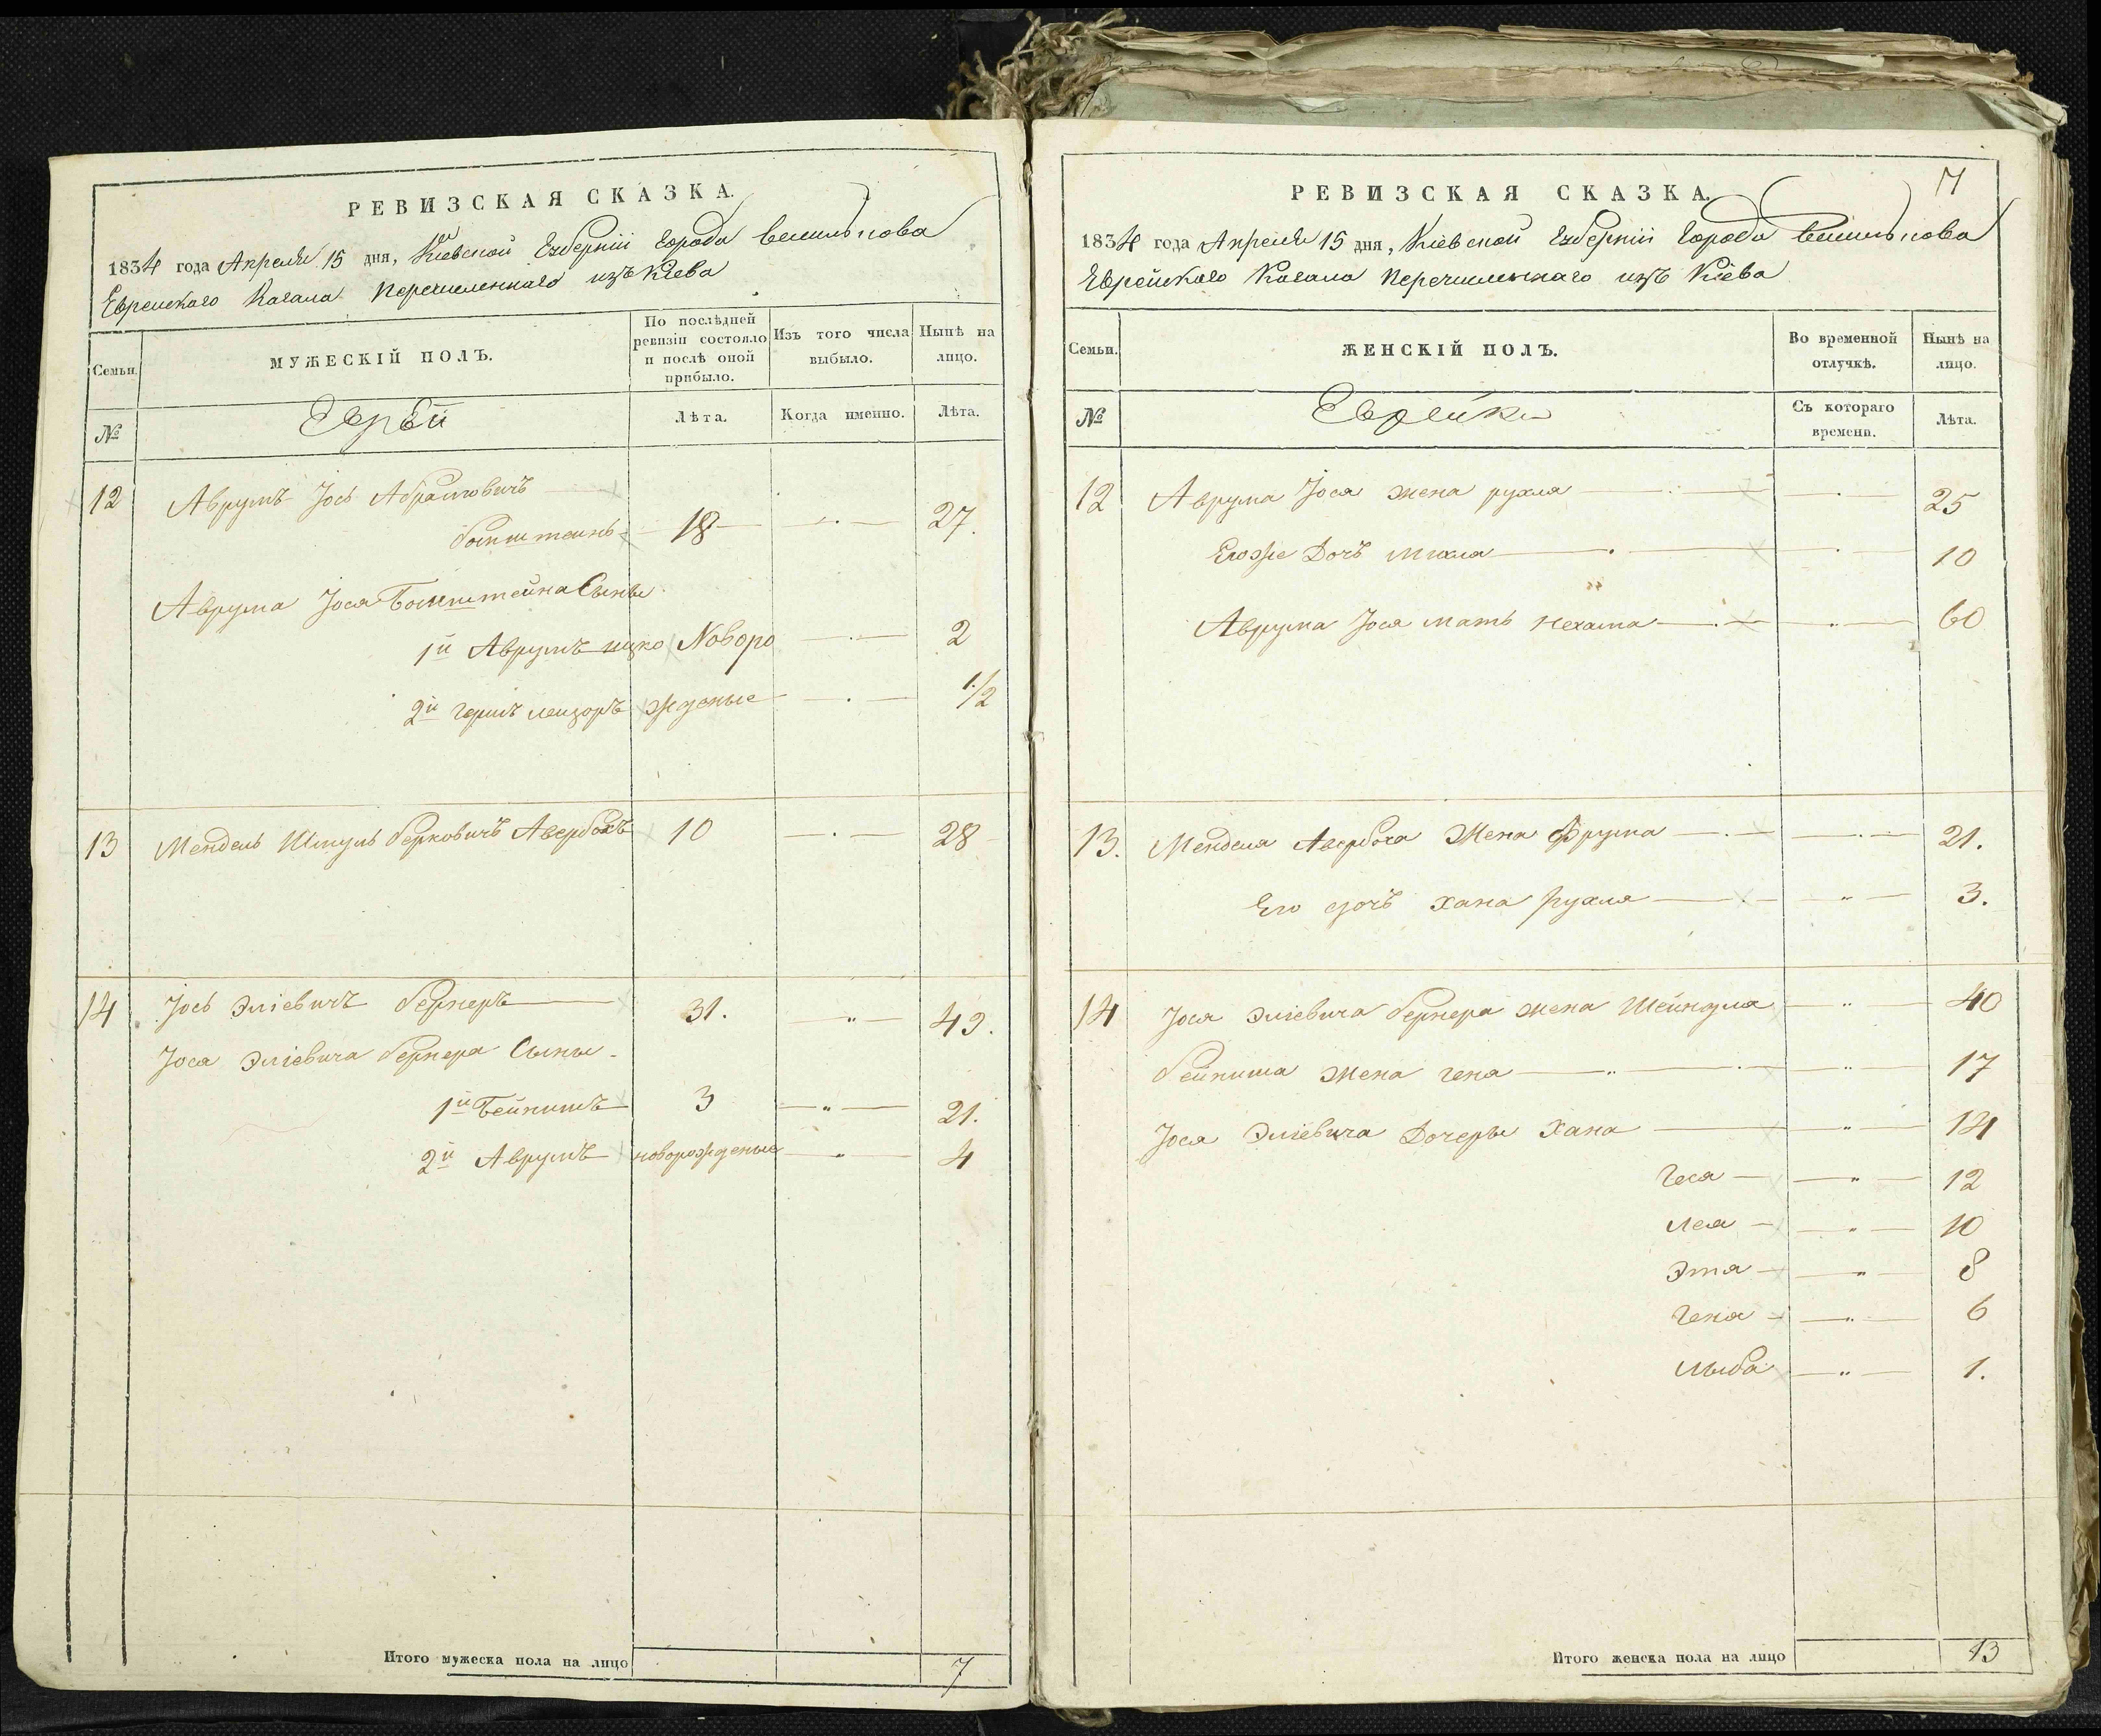 РЕВИЗСКАЯ СКАЗКА.
1834 года Апреля 15 дня, Кіевской Губерніи Города Василькова
Еврейскаго Кагала Перечисленнаго изъ Кіева
Семьи.
МУЖЕСКІЙ ПОЛЪ.
По послѣдней ревизіи состояло и послѣ оной прибыло.
Изъ того числа выбыло.
Ныпѣ на лицо.
№
Еврѣи
Лѣта.
Когда именно.
Лѣта.
12 Аврумъ Іось Абрамовичъ
18 — · — 27.
Аврума Іося Сыны
1й Аврумъ ицко Новоро — · — 2
2й Гершъ лейзоръ жденые — · — 1/2
13 Мендель Шмуль берковичъ Авербахъ 10 — · — 28
14 Іось Эліевичъ бернеръ 31. — „ — 49.
Іося Эліевича бернера Сыны
1й Бейнишъ 3 — „ — 21.
2й Аврумъ новорожденые — „ — 4
Итого мужеска пола на лицо 7
7
РЕВИЗСКАЯ СКАЗКА.
1834 года Апреля 15 дня, Кіевской Губерніи Города Василькова
Еврейскаго Кагала Перечисленнаго изъ Кіева
Семьи.
ЖЕНСКІЙ ПОЛЪ.
Во временной отлучкѣ.
Нынѣ на лицо.
№
Еврейки
Съ котораго времени.
Лѣта.
12 Аврума Іося жена рухля — · — 25
Егоже Дочъ Михля — · — 10
Аврума Іося мать нехама — · — 60
13. Менделя Авербаха Жена Фрума — · — 21.
Его дочъ хана Рухля — „ — 3.
14 Іося Эліевича бернера жена Шейндля — „ — 40
бейниша жена гена — „ — 17
Іося Эліевича Дочеры Хана — „ — 14
Геся — „ — 12
Лея — „ — 10
Эта — „ — 8
Геня — „ — 6
Лыба — „ — 1.
Итого женска пола на лицо 13